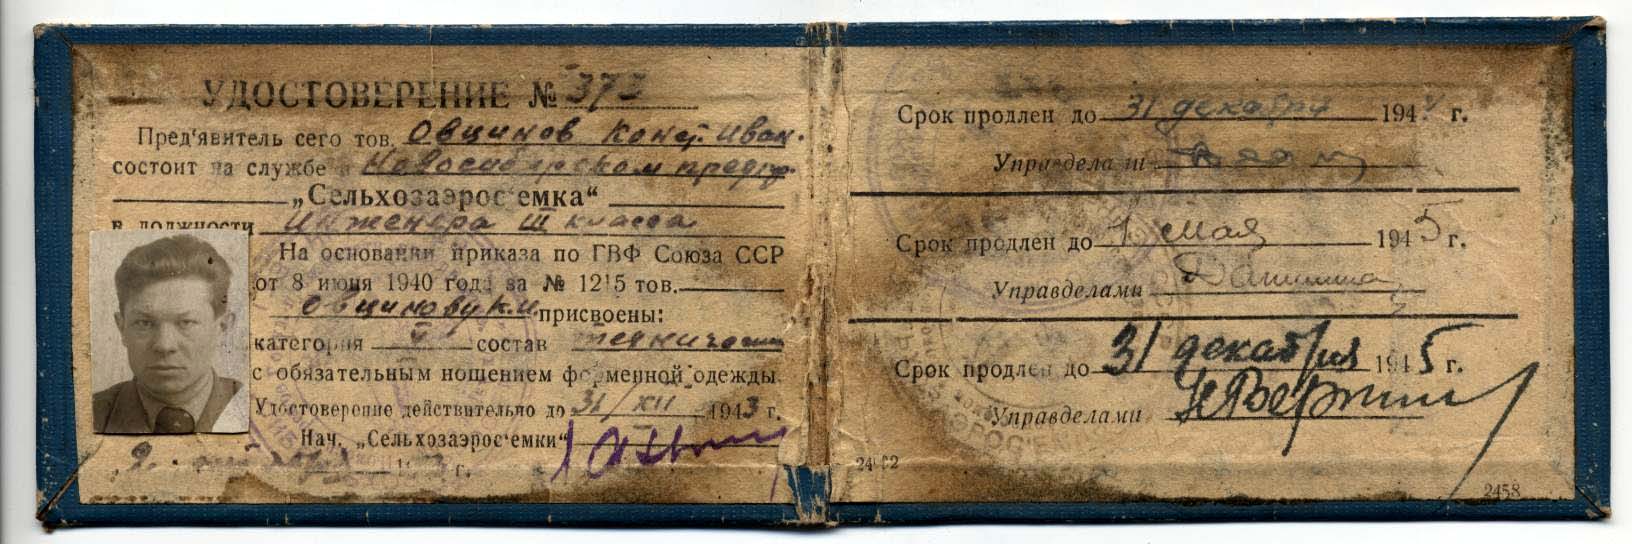 УДОСТОВЕРЕНИЕ № 373
Пред'явитель сего тов. Овцинов Конст. Иван.
состоит на службе в Новосибирском предпр.
„Сельхозаэрос'емка“
в должности инженера III класса
На основании приказа по ГВФ Союза ССР
от 8 июня 1940 года за № 1215 тов.
Овцинову К.И. присвоены:
категория состав технический
с обязательным ношением форменной одежды.
Удостоверение действительно до 31/XII 1943 г.
Нач. „Сельхозаэрос'емки“
г.
Срок продлен до 31 декабря 1944 г.
Управделами
Срок продлен до 1 мая 1945 г.
Управделами
Срок продлен до 31 декабря 1945 г.
Управделами
2458